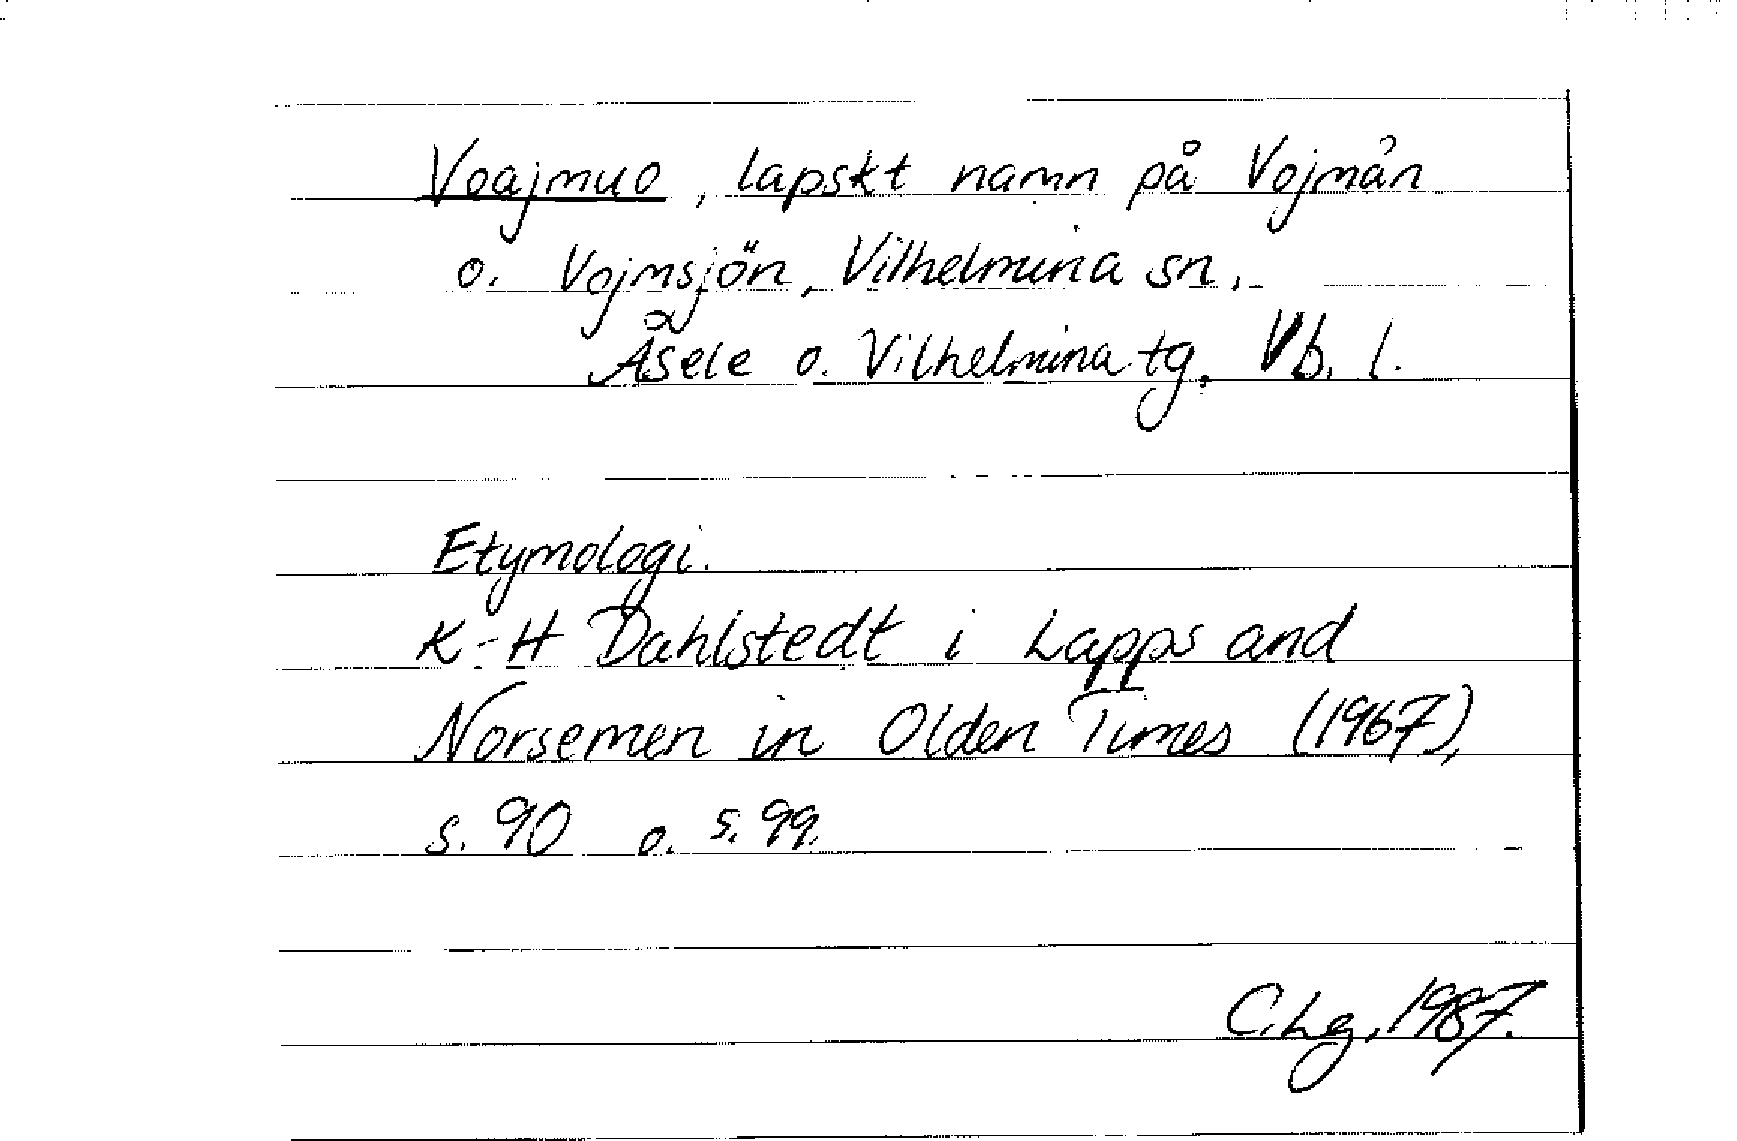 Voajmuo, lapskt namn på Vojmån
o. Vojmsjön, Vilhelmina sn.
Åsele o. Vilhelmina tg. Vb. l.
Etymologi.
K-H Dahlstedt i Lapps and
Norsemen in Olden Times (1967),
s. 90 o. s. 99.
C.Lg, 1987.